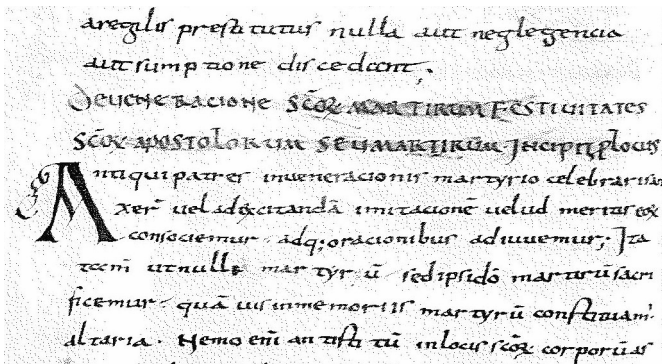 aregilis prestitutus nulla aut neglegencia
aut sumptione discedant;
De ueneracione scōꝝ martirum festiuitates
scōꝝ apostolorum seu martirūm Incipit plocus
Antiqui patres inueneracionis martyrio celebrari san
xer̄ uel ad excitandā imitacionē uelud meritis eoꝝ
consociemur adq; oracionibus adiuuemur; Ita
tam̄ ut nulle martyrū sed ipsi dō martirū sacri
ficemur quā uis inmemoriis martyrū constituam᾿
altaria. Nemo eni᾿ antisti tū inlocis scōꝝ corporū as